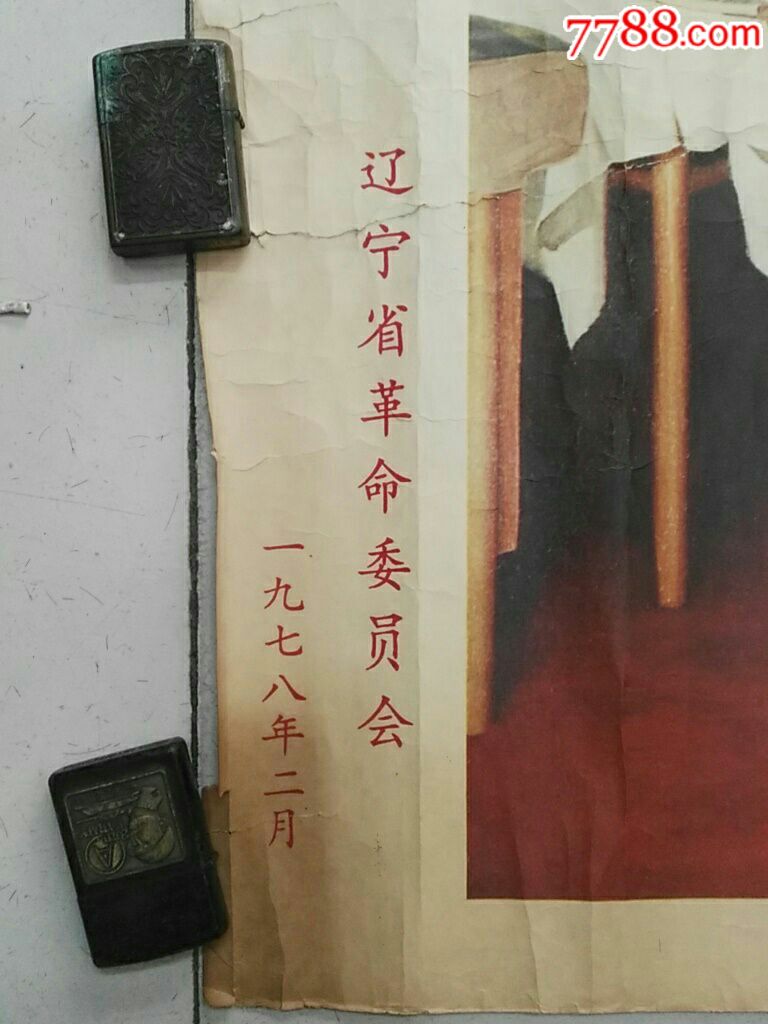 7788.com
辽宁省革命委员会
一九七八年二月